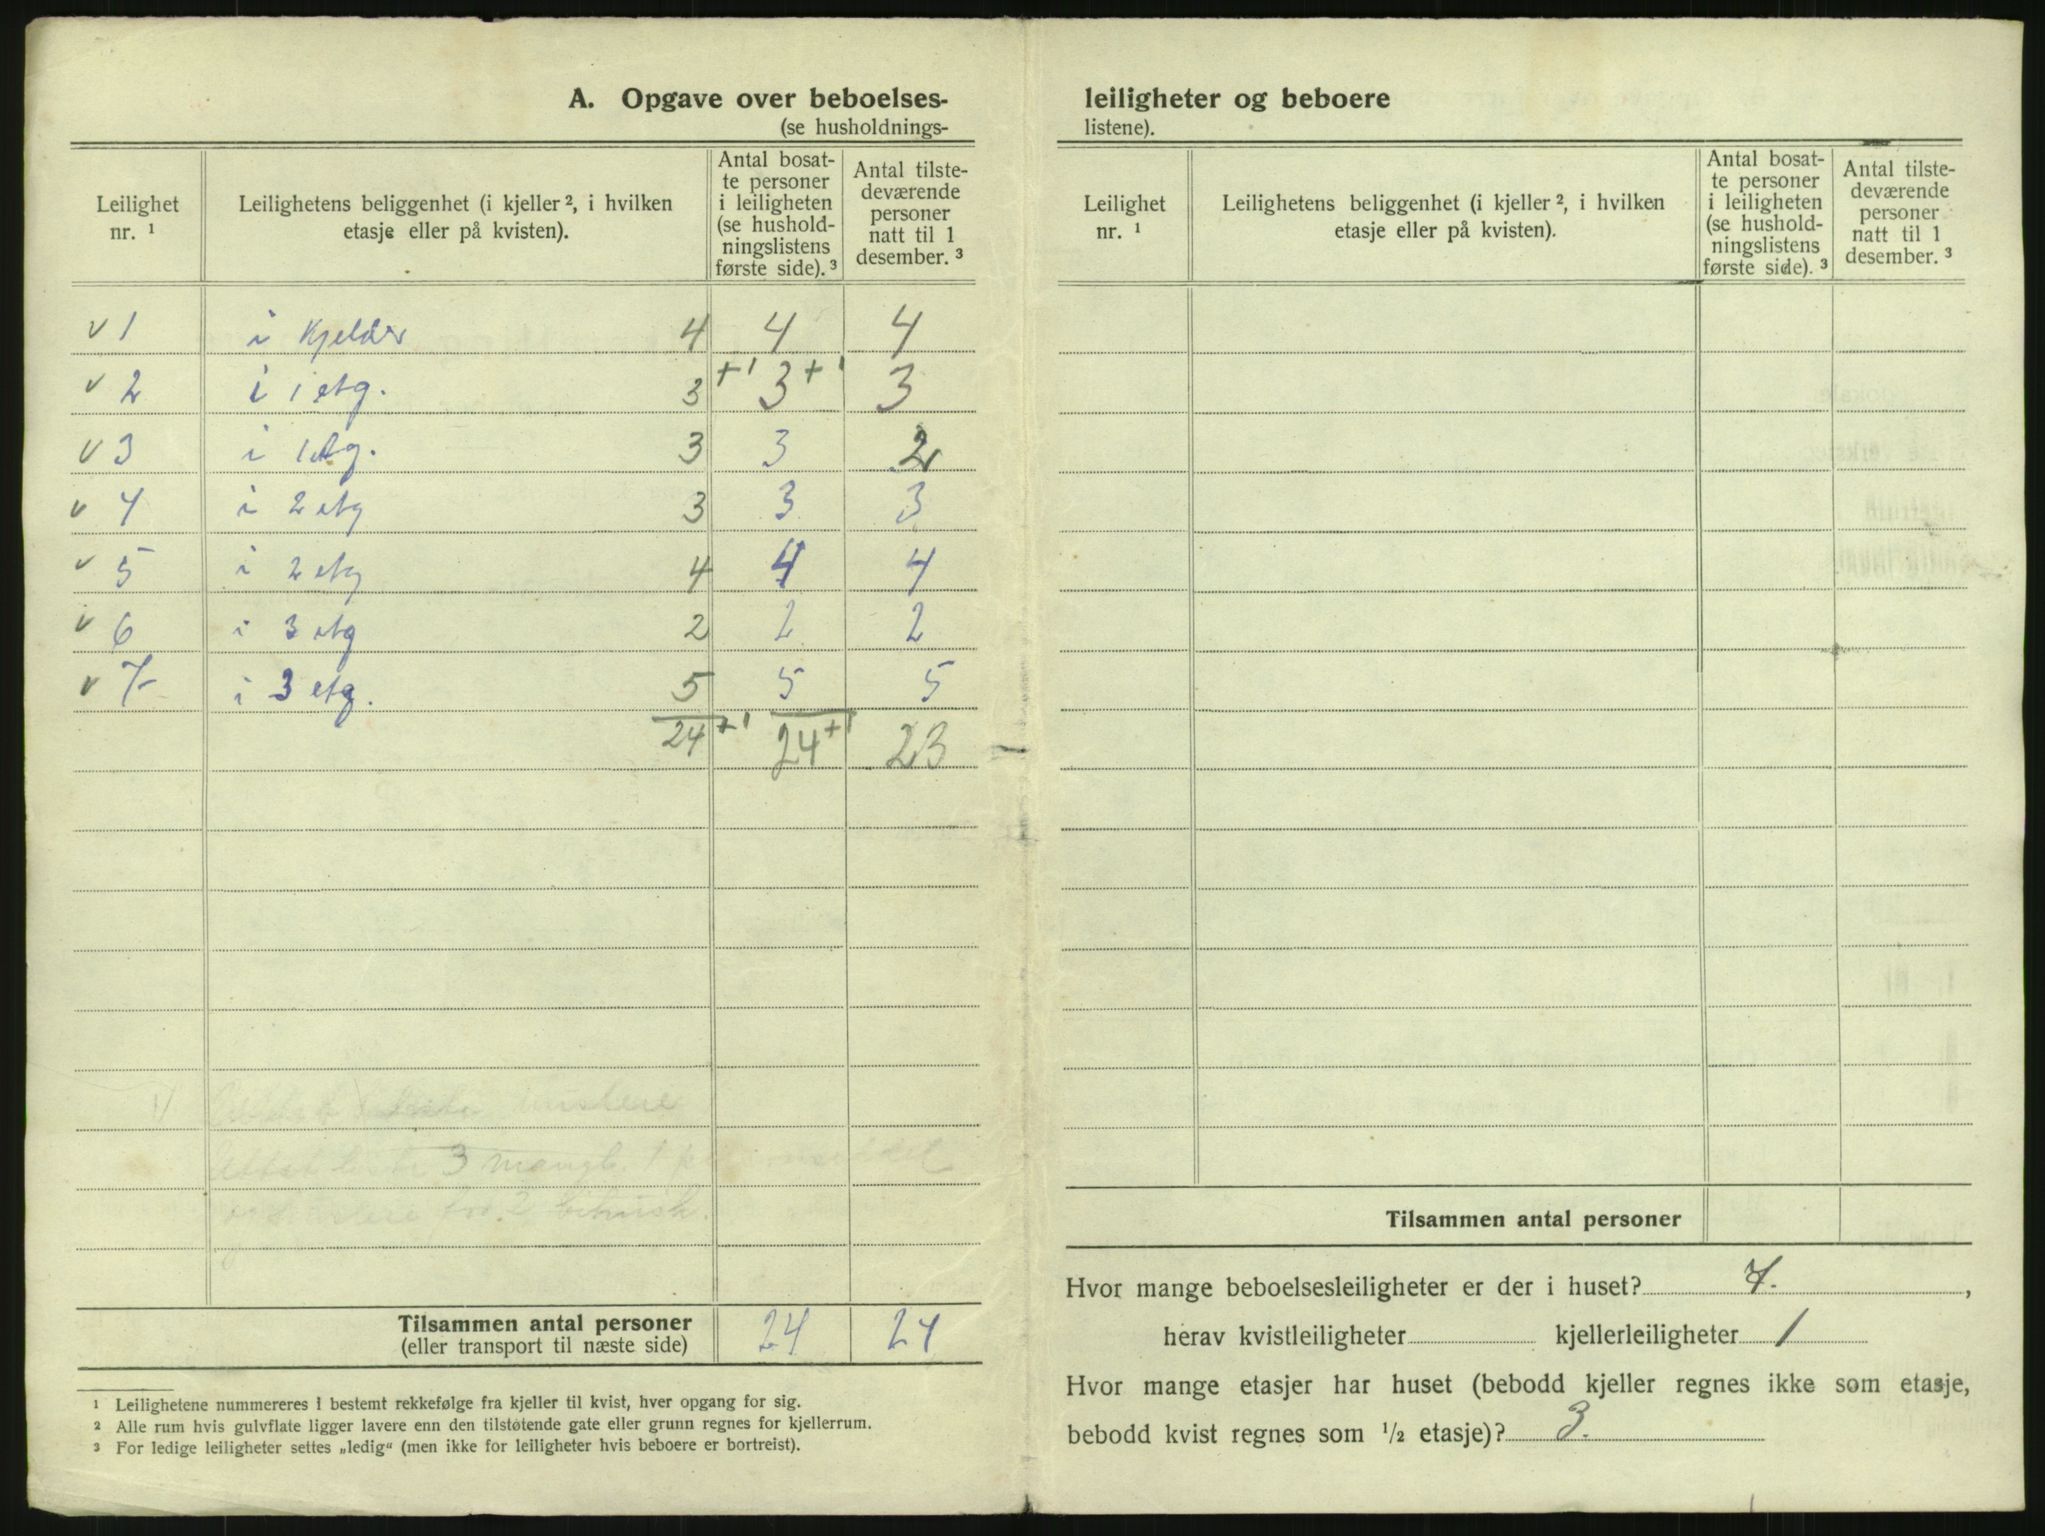 A. Opgave over beboelses-
(se husholdnings-
Leilighet nr. ¹
Leilighetens beliggenhet (i kjeller ², i hvilken etasje eller på kvisten).
Antal bosat-
te personer
i leiligheten
(se hushold-
ningslistens
første side). ³
Antal tilste-
deværende
personer
natt til 1
desember. ³
v 1 i Kjelder 4 4 4
v 2 i 1 etg. 3 +1 3 +1 3
v 3 i 1 etg. 3 3 2
v 4 i 2 etg 3 3 3
v 5 i 2 etg 4 4 4
v 6 i 3 etg 2 2 2
v 7 i 3 etg. 5 5 5
24 +1 24 +1 23
1)
3 mangl. 1
Tilsammen antal personer 24 24
(eller transport til næste side)
¹ Leilighetene nummereres i bestemt rekkefølge fra kjeller til kvist, hver opgang for sig.
² Alle rum hvis gulvflate ligger lavere enn den tilstøtende gate eller grunn regnes for kjellerrum.
³ For ledige leiligheter settes „ledig“ (men ikke for leiligheter hvis beboere er bortreist).
leiligheter og beboere
listene).
Leilighet nr. ¹
Leilighetens beliggenhet (i kjeller ², i hvilken etasje eller på kvisten).
Antal bosat-
te personer
i leiligheten
(se hushold-
ningslistens
første side). ³
Antal tilste-
deværende
personer
natt til 1
desember. ³
Tilsammen antal personer
Hvor mange beboelsesleiligheter er der i huset? 7. ,
herav kvistleiligheter kjellerleiligheter 1
Hvor mange etasjer har huset (bebodd kjeller regnes ikke som etasje,
bebodd kvist regnes som ½ etasje)? 3.